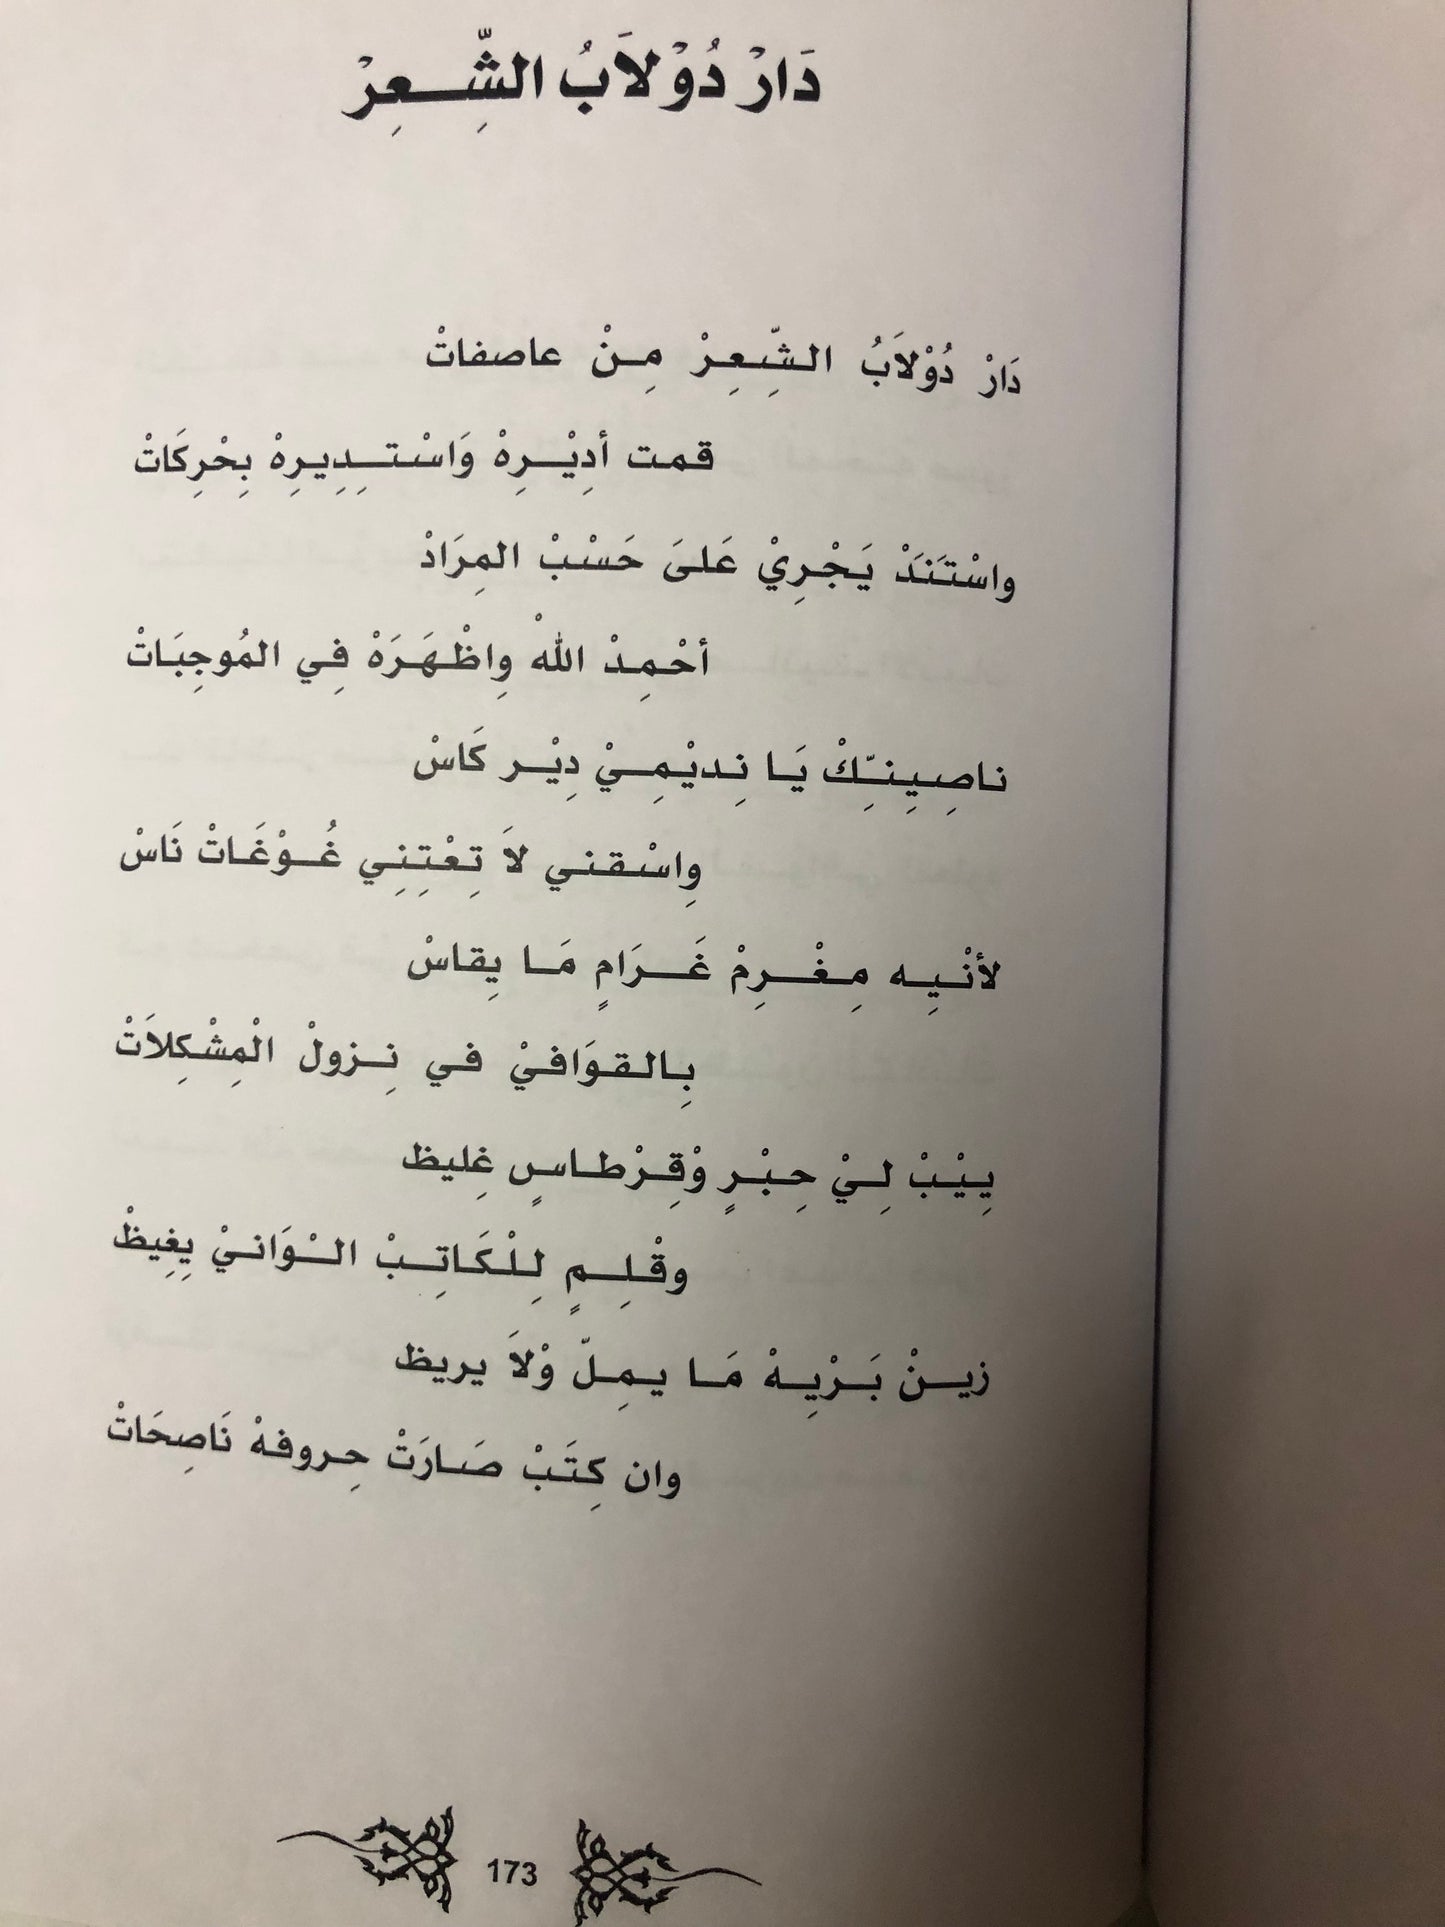 دَارْ دُوْلاَبُ الشِّعِرْ
دَارْ دُوْلاَبُ الشِّعِرْ مِنْ عاصفاتْ
قمت أدِيْرِهْ وَاسْتِدِيرِهْ بِحْرِكَاتْ
واسْتَنَدَ يَجْرِيْ عَلىَ حَسْبْ المِرَادْ
أحْمِدْ اللهْ وِاظْهَرَهْ فِي المُوجِبَاتْ
ناصِينِّكْ يَا نِديْمِيْ دِيْر كَاسْ
وِاسْقني لاَ تِعْتِنِي غُوْغَاتْ نَاسْ
لأنْيِه مِغْرِمْ غَرَامٍ مَا يِقاسْ
بِالقوَافيْ في نِزولْ الْمِشْكِلاَتْ
يِيْبْ لِيْ حِبْرٍ وْقِرْطاسٍ غِليظ
وقْلِمٍ لِلْكَاتِبْ الْوَانيْ يِغِيظْ
زينْ بَرْيِهْ مَا يمِلّ وْلاَ يريظ
وان كِتَبْ صَارَتْ حِروفهْ نَاصِحَاتْ
173